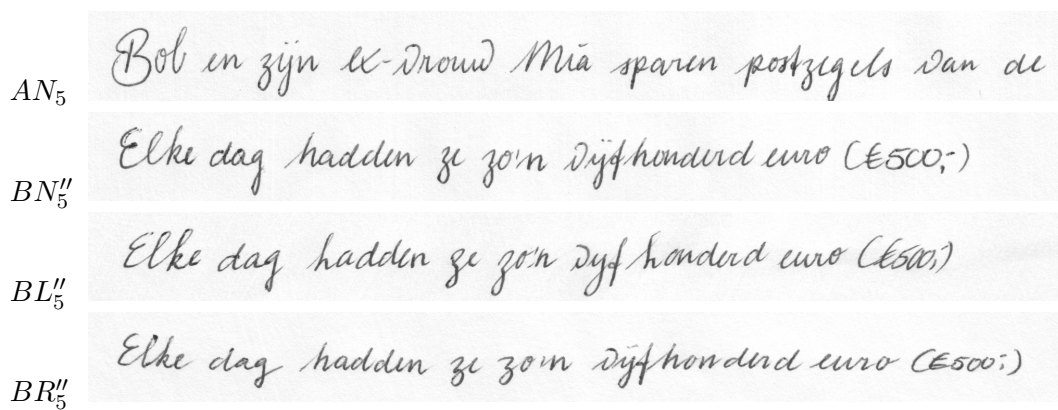 AN₅ Bob en zijn ex-vrouw Mia sparen postzegels van de
BN″₅ Elke dag hadden ze zo'n vijfhonderd euro (€500,-)
BL″₅ Elke dag hadden ze zo'n vijf honderd euro (€500,)
BR″₅ Elke dag hadden ze zo'n vijfhonderd euro (€500,-)